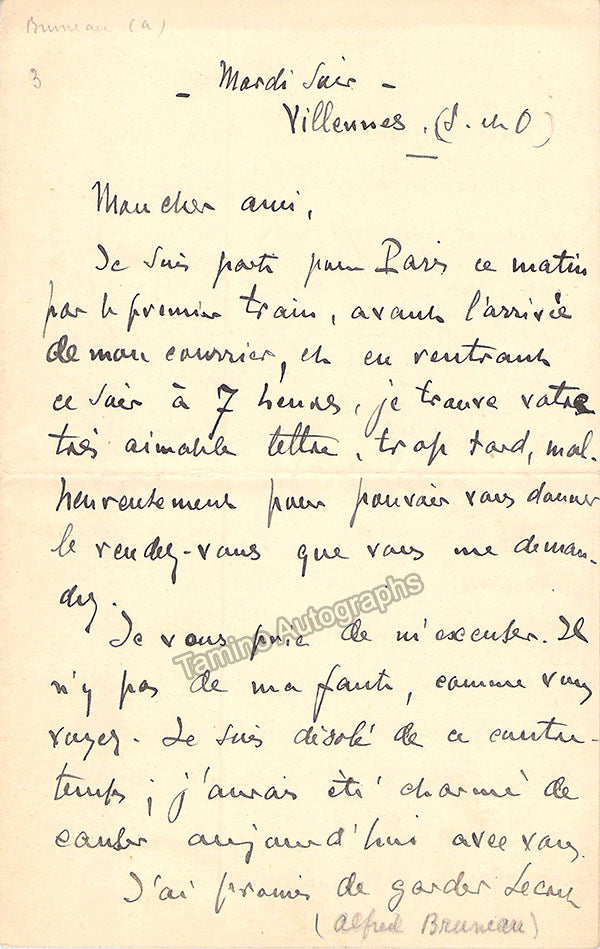 Bruneau (a)
3
- Mardi Soir -
Villennes. (S. et O)
Mon cher ami,
Je suis parti pour Paris ce matin
par le premier train, avant l'arrivée
de mon courrier, et en rentrant
ce soir à 7 heures, je trouve votre
très aimable lettre, trop tard, mal-
heureusement pour pouvoir vous donner
le rendez-vous que vous me deman-
dez.
Je vous prie de m'excuser. Il
n'y pas de ma faute, comme vous
voyez. Je suis désolé de ce contre-
temps; j'aurais été charmé de
causer aujourd'hui avec vous.
J'ai promis de garder
(Alfred Bruneau)
Tamino Autographs